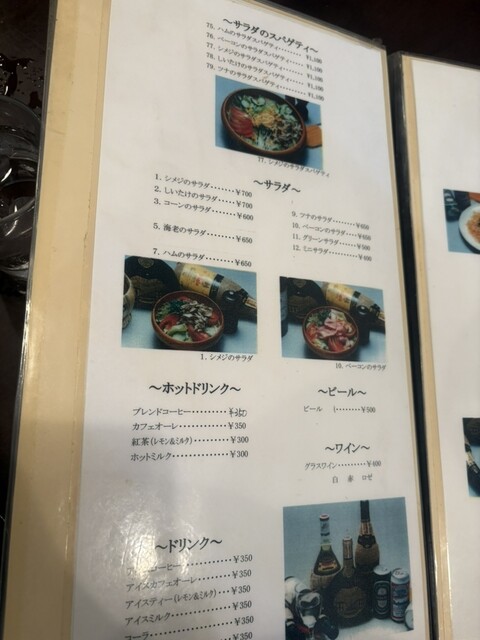 ～サラダのスパゲティ～
75. ハムのサラダスパゲティ‥‥‥ ¥1,100
76. ベーコンのサラダスパゲティ‥‥‥ ¥1,100
77. シメジのサラダスパゲティ‥‥‥ ¥1,100
78. しいたけのサラダスパゲティ‥‥‥ ¥1,100
79. ツナのサラダスパゲティ‥‥‥ ¥1,100
77. シメジのサラダスパゲティ
～サラダ～
1. シメジのサラダ‥‥‥¥700
2. しいたけのサラダ‥‥‥¥700
3. コーンのサラダ‥‥‥¥600
5. 海老のサラダ‥‥‥¥650
7. ハムのサラダ‥‥‥¥650
9. ツナのサラダ‥‥‥¥650
10. ベーコンのサラダ‥‥‥¥650
11. グリーンサラダ‥‥‥¥500
12. ミニサラダ‥‥‥¥400
1. シメジのサラダ
10. ベーコンのサラダ
～ホットドリンク～
ブレンドコーヒー‥‥‥¥350
カフェオーレ‥‥‥¥350
紅茶(レモン&ミルク)‥‥‥¥300
ホットミルク‥‥‥¥300
～ビール～
ビール ‥‥‥¥500
～ワイン～
グラスワイン‥‥‥¥400
白 赤 ロゼ
～ドリンク～
¥350
アイスカフェオーレ‥‥‥¥350
アイスティー(レモン&ミルク)‥‥‥¥350
アイスミルク‥‥‥¥350
コーラ‥‥‥¥350